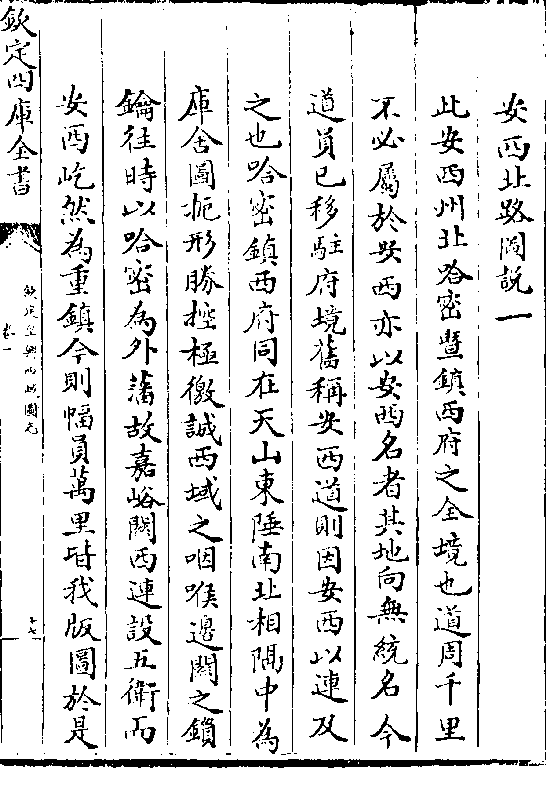 安西北路圖説一
此安西州北哈密暨鎮西府之全境也道周千里
不必屬於安西亦以安西名者其地向無統名今
道員已移駐府境舊稱安西道則因安西以連及
之也哈密鎮西府同在天山東陲南北相隅中為
庫舍圖扼形勝控極徼誠西域之咽喉邊闗之鎖
鑰往時以哈密為外藩故嘉峪闗西連設五衛而
安西屹然為重鎮今則幅員萬里皆我版圖於是
欽定四庫全書
欽定皇輿西域圖志
卷一
十七